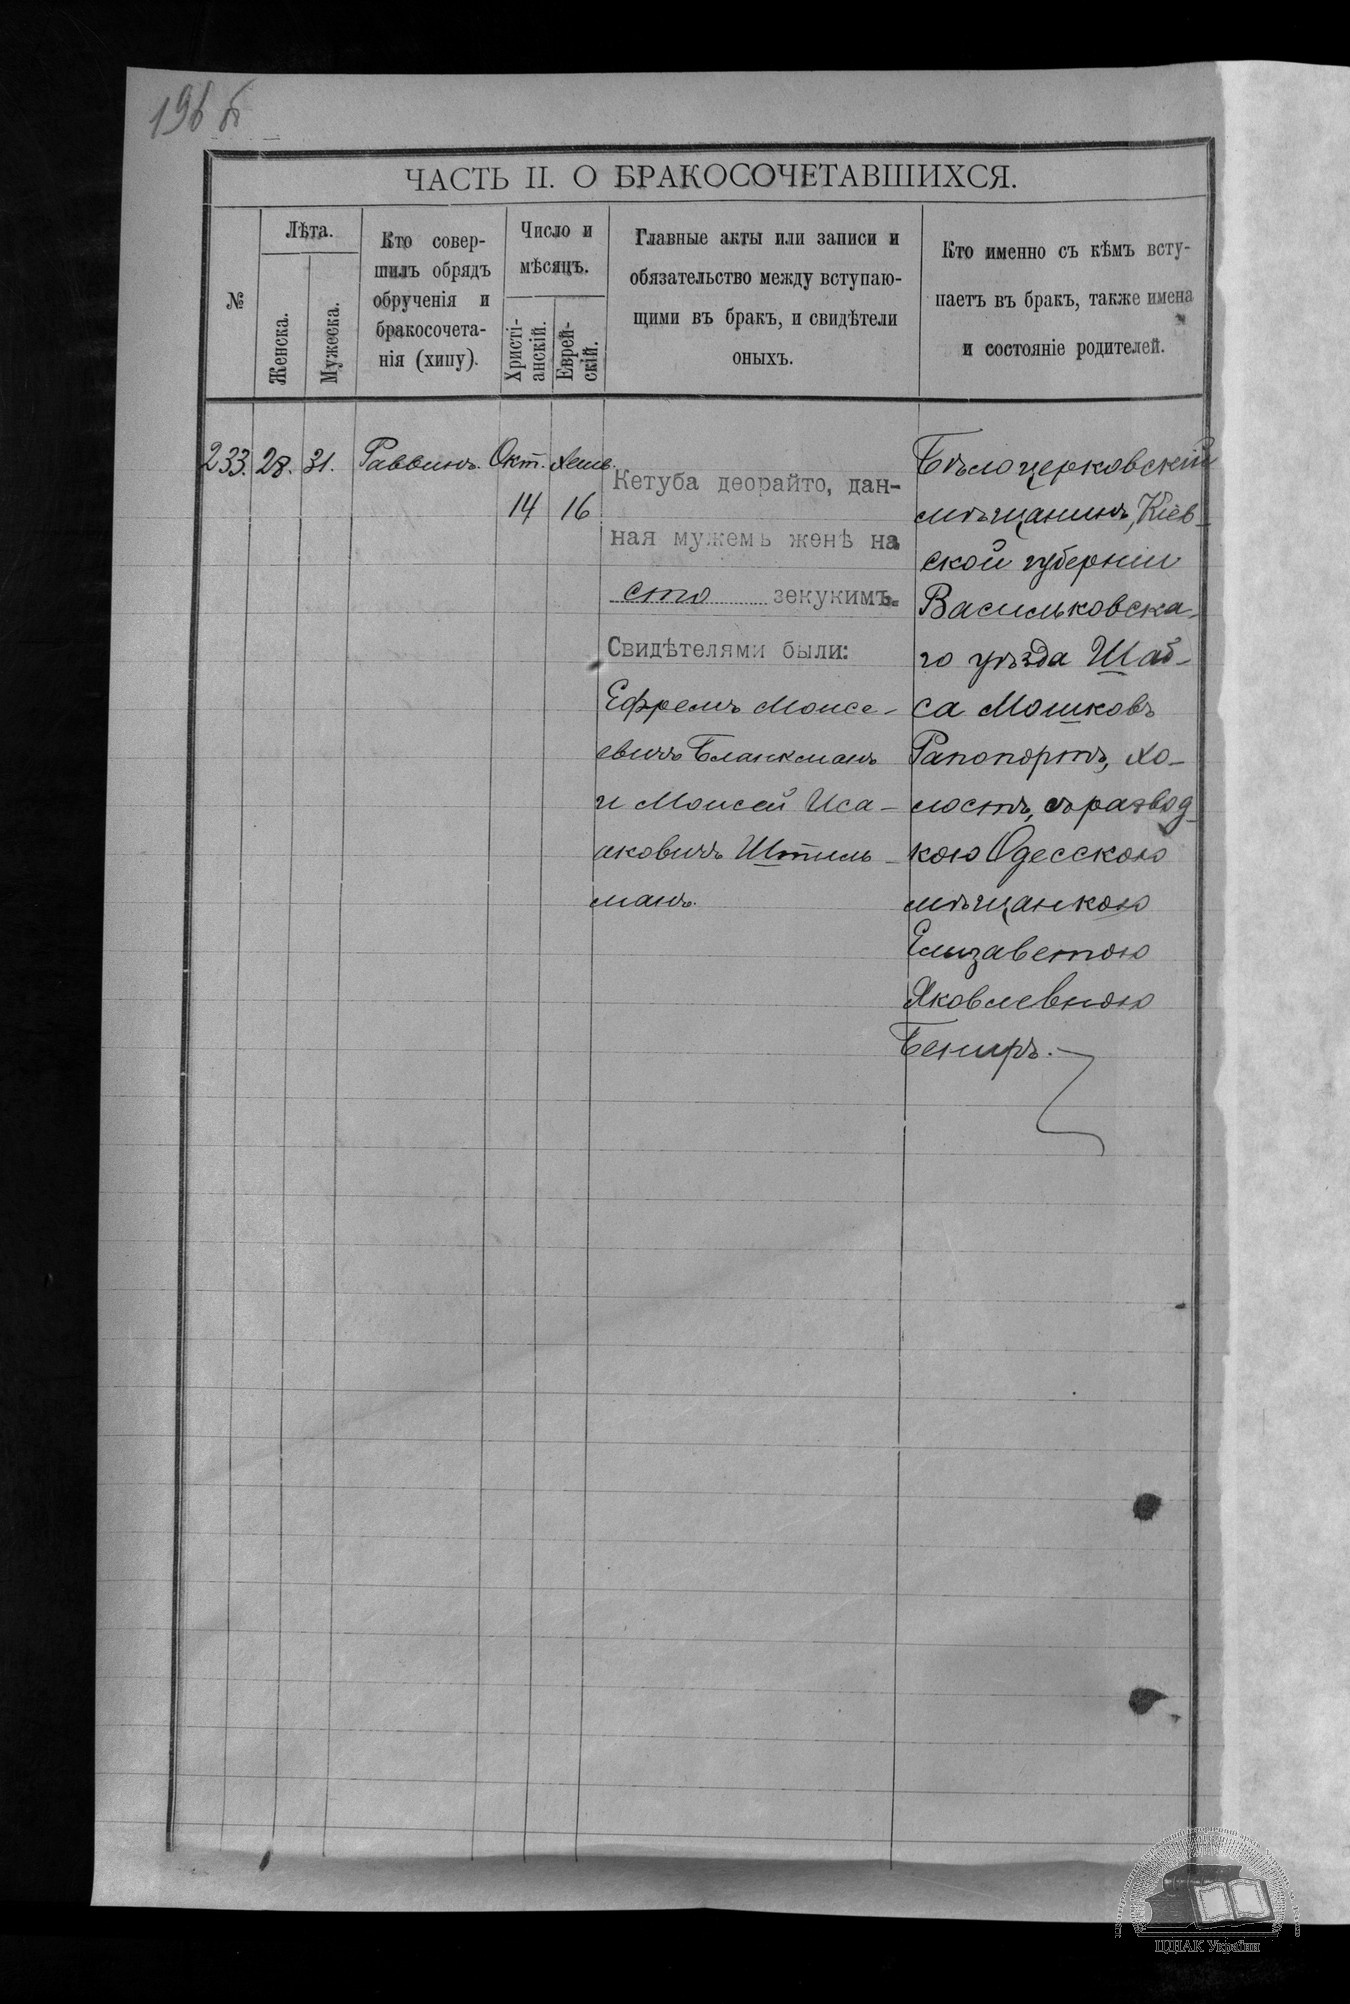 196 б
ЧАСТЬ II. О БРАКОСОЧЕТАВШИХСЯ.
№
Лѣта.
Женска.
Мужеска.
Кто совер-
шилъ обрядъ
обрученія и
бракосочета-
нія (хипу).
Число и
мѣсяцъ.
Христі-
анскій.
Еврей-
скій.
Главные акты или записи и
обязательство между вступаю-
щими въ бракъ, и свидѣтели
оныхъ.
Кто именно съ кѣмъ всту-
паетъ въ бракъ, также имена
и состояніе родителей.
233. 28. 31. Раввинъ. Окт. Хешв.
14 16
Кетуба деорайто, дан-
ная мужемъ женѣ на
сто зекукимъ.
Свидѣтелями были:
Ефремъ Моисе-
евичъ Бланкманъ
и Моисей Иса-
аковичъ Штиль-
манъ.
Бѣлоцерковскій
мѣщанинъ, Кіев-
ской губерніи
Васильковска-
го уѣзда Шаб-
са Мошковъ
Рапопортъ, хо-
лостъ, съ развод-
кою Одесскою
мѣщанкою
Елизаветою
Яковлевною
ЦДІАК України